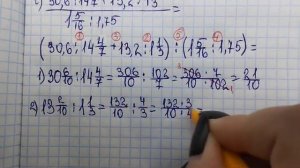 с) 30,6 : 14 4/7 + 13,2 : 1 1/3
1 5/16 : 1,75
① ③ ② ⑤ ④
(30,6 : 14 4/7 + 13,2 : 1 1/3) : (1 5/16 : 1,75) =
1) 30,6 : 14 4/7 = 306/10 : 102/7 = 306/10 · 7/102 = 21/10
2) 13 2/10 : 1 1/3 = 132/10 : 4/3 = 132 · 3/10 · 4 =